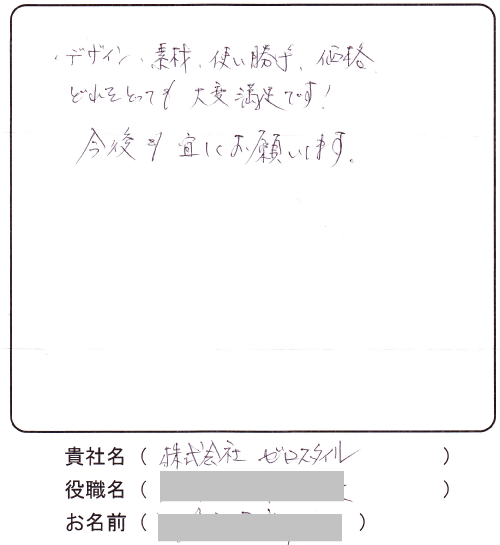 ・デザイン、素材、使い勝手、価格
どれをとっても大変満足です!
今後も宜しくお願いします。
貴社名 ( 株式会社 ゼロスタイル )
役職名 ( )
お名前 ( )